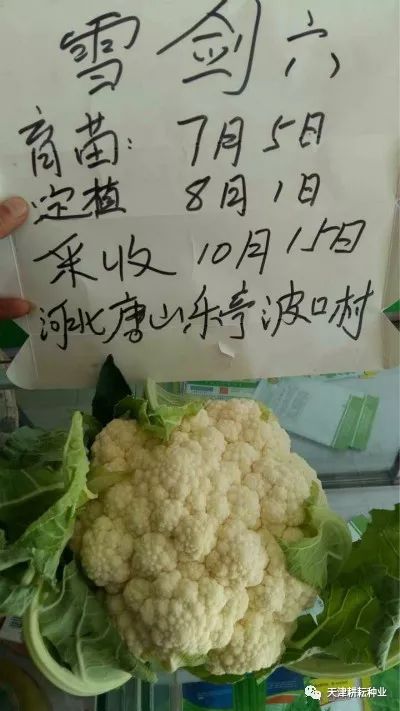 雪剑六
育苗: 7月5日
定植 8月1日
采收 10月15日
河北唐山乐亭波口村
天津耕耘种业